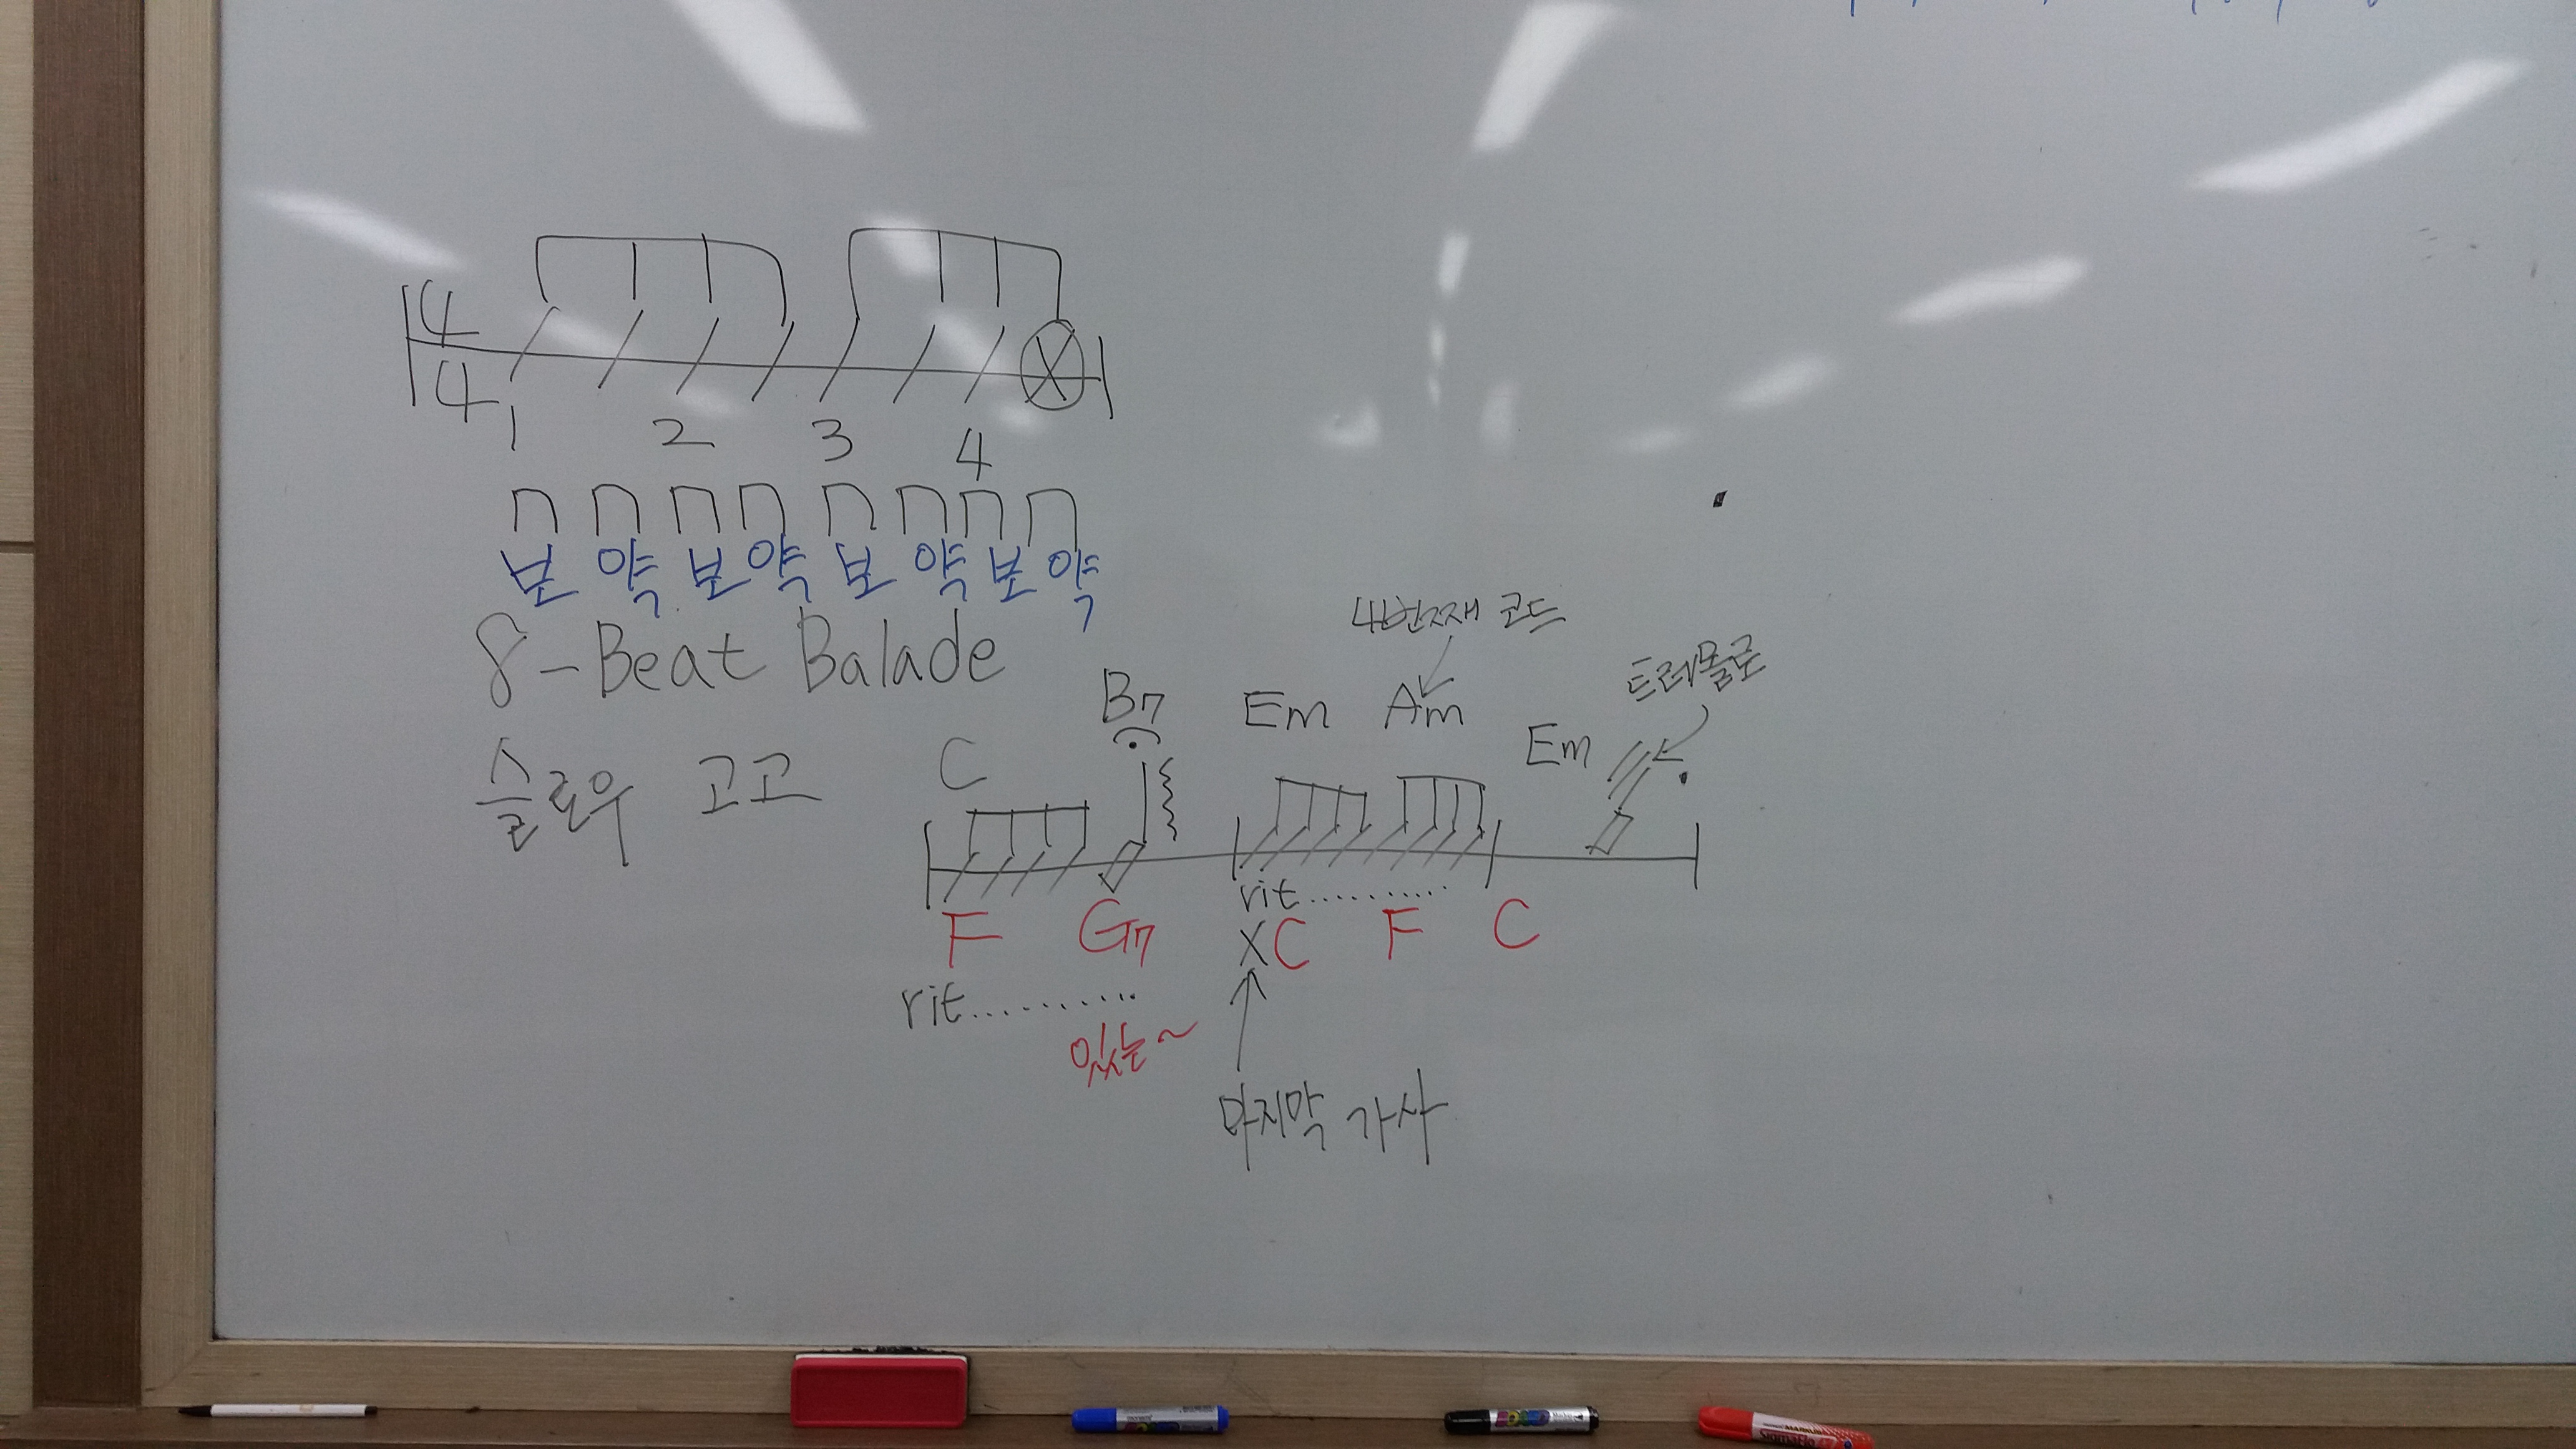 4
4
1 2 3 4
보 약 보 약 보 약 보 약
8-Beat Balade
스로우 고고
4번째 코드
트레몰로
C B7 Em Am Em
rit..........
F G7 X C F C
rit..........
있는~
마지막 가사